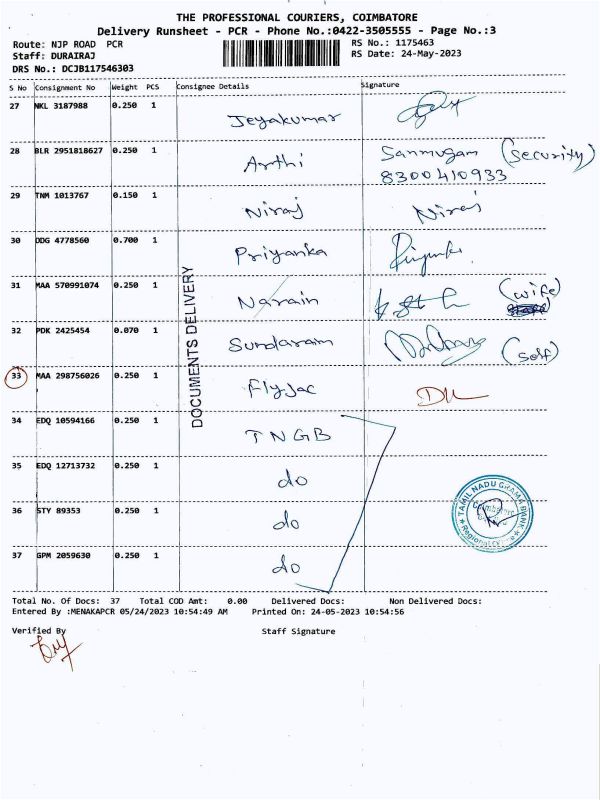 THE PROFESSIONAL COURIERS, COIMBATORE
Delivery Runsheet - PCR - Phone No.:0422-3505555 - Page No.:3
Route: NJP ROAD PCR
RS No.: 1175463
Staff: DURAIRAJ
RS Date: 24-May-2023
DRS No.: DCJB117546303
S No Consignment No Weight PCS Consignee Details Signature
27 NKL 3187988 0.250 1 Jeyakumar
28 BLR 2951818627 0.250 1 Arthi Sanmugam (security)
8300410933
29 TNM 1013767 0.150 1 Niraj Niraj
30 DDG 4778560 0.700 1 Priyanka Priyanka
31 MAA 570991074 0.250 1 Narain (wife)
32 PDK 2425454 0.070 1 Sundaram (self)
33 MAA 298756026 0.250 1 Flyjac
34 EDQ 10594166 0.250 1 TNGB
35 EDQ 12713732 0.250 1 do
36 STY 89353 0.250 1 do
37 GPM 2059630 0.250 1 do
DOCUMENTS DELIVERY
TAMIL NADU GRAMA BANK
Coimbatore
Regional Office
Total No. Of Docs: 37 Total COD Amt: 0.00 Delivered Docs: Non Delivered Docs:
Entered By :MENAKAPCR 05/24/2023 10:54:49 AM Printed On: 24-05-2023 10:54:56
Verified By Staff Signature